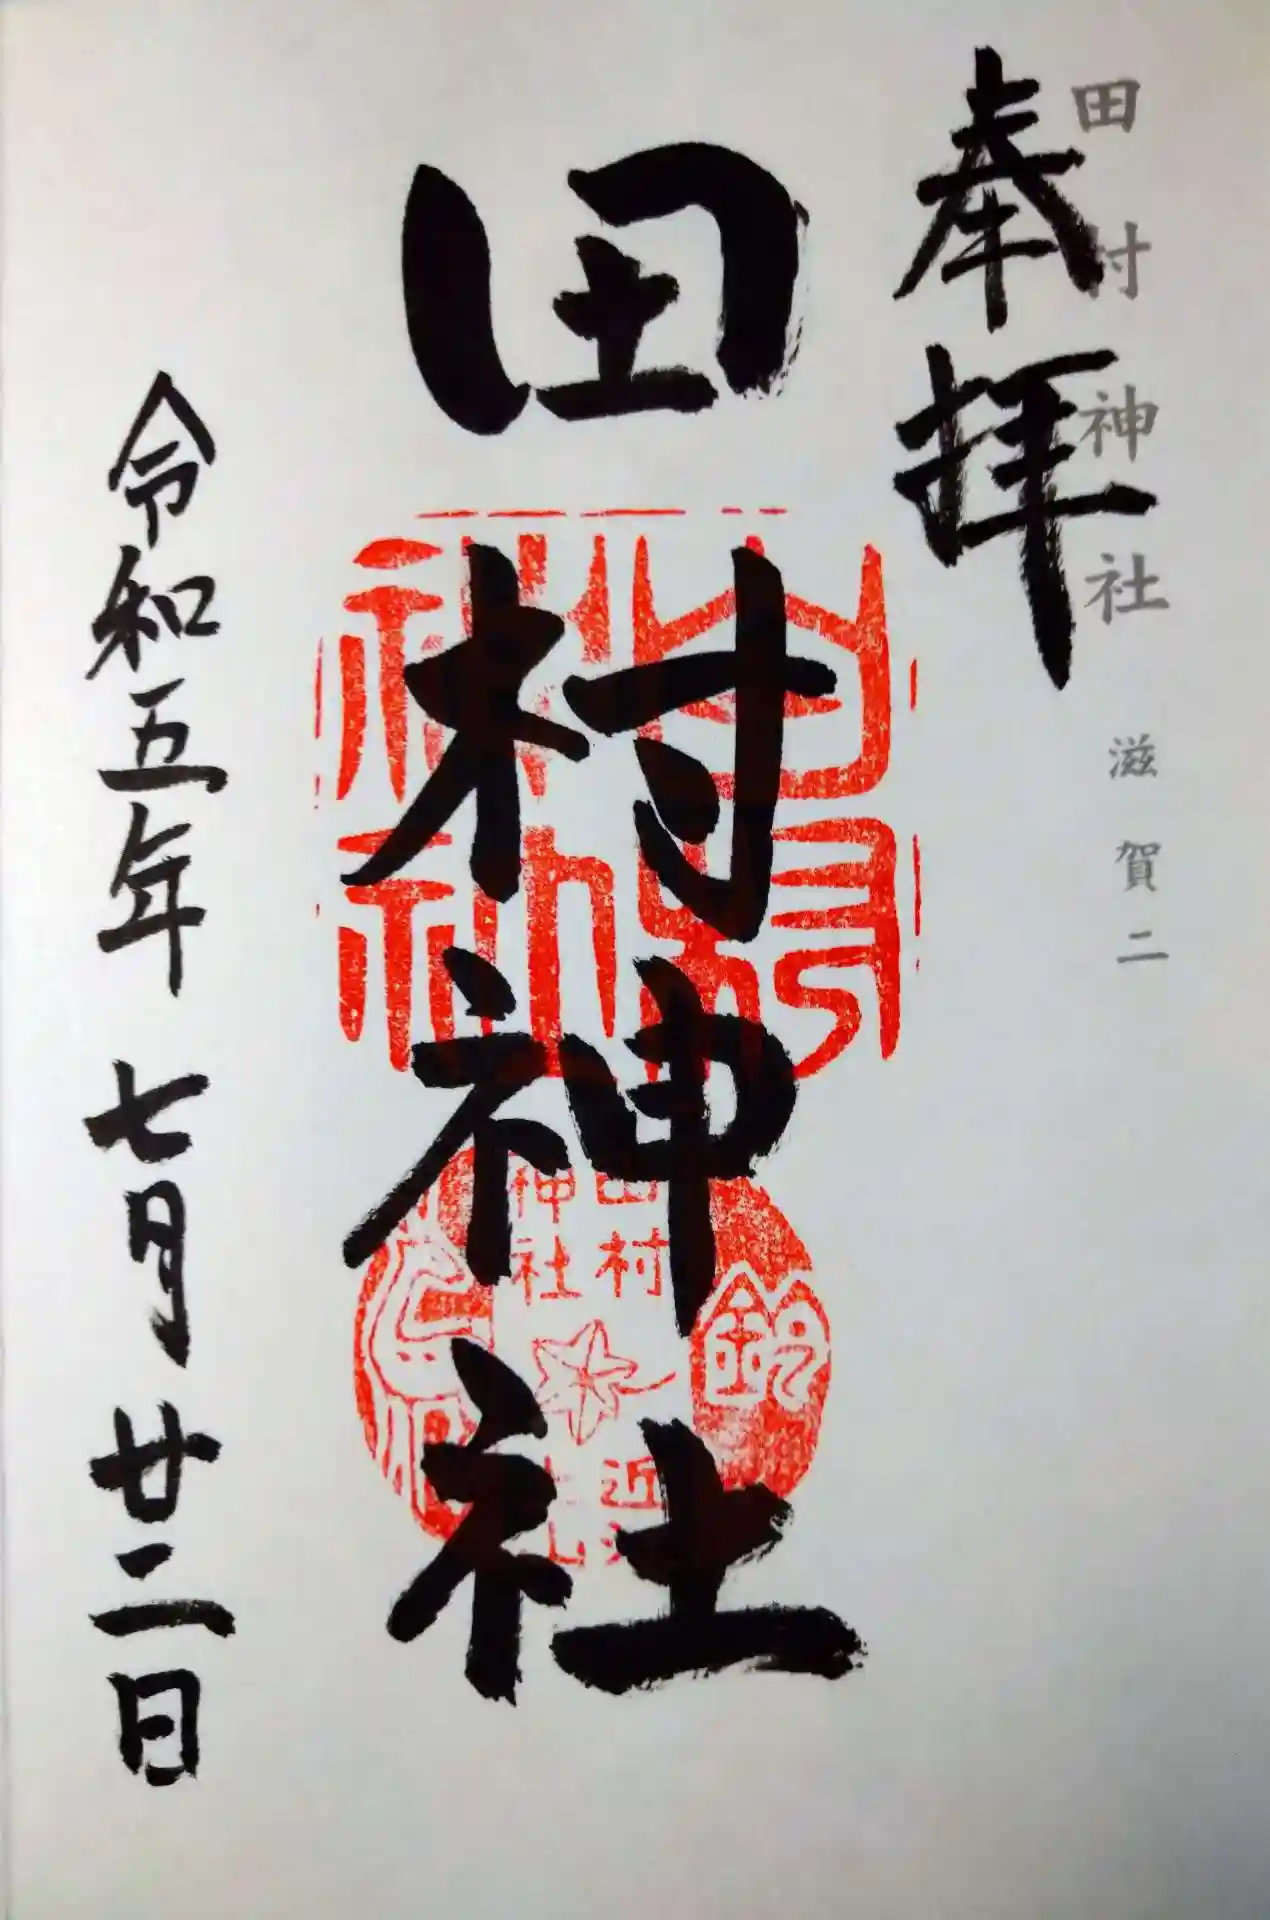 田村神社 滋賀二
奉拝
田村神社
田村
神社
鈴
近
令和五年 七月廿二日